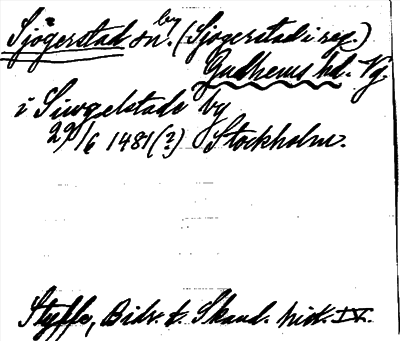 by
Sjögerstad sn. (Sjögerstad i reg.)
Gudhems hd. Vg.
i Siwgelstade by
29/6 1481 (?) Stockholm.
Styffe, Bidr. t. Skand. hist. IV.